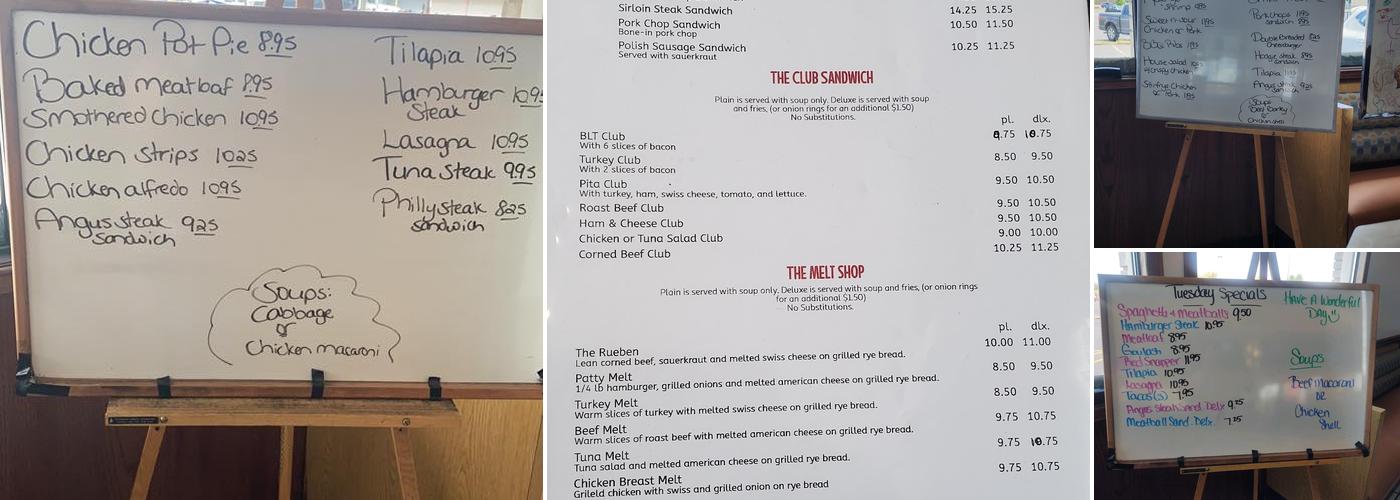 Chicken Pot Pie 8.95
Baked meatloaf 8.95
Smothered Chicken 10.95
Chicken strips 10.25
Chicken alfredo 10.95
Angus steak 9.25
sandwich
Tilapia 10.95
Hamburger 10.95
Steak
Lasagna 10.95
Tuna Steak 9.95
Philly steak 8.25
sandwich
Soups:
Cabbage
or
Chicken macaroni
Sirloin Steak Sandwich 14.25 15.25
Pork Chop Sandwich 10.50 11.50
Bone-in pork chop
Polish Sausage Sandwich 10.25 11.25
Served with sauerkraut
THE CLUB SANDWICH
Plain is served with soup only. Deluxe is served with soup
and fries, (or onion rings for an additional $1.50)
No Substitutions.
pl. dlx.
BLT Club 9.75 10.75
With 6 slices of bacon
Turkey Club 8.50 9.50
With 2 slices of bacon
Pita Club 9.50 10.50
With turkey, ham, swiss cheese, tomato, and lettuce.
Roast Beef Club 9.50 10.50
Ham & Cheese Club 9.50 10.50
Chicken or Tuna Salad Club 9.00 10.00
Corned Beef Club 10.25 11.25
THE MELT SHOP
Plain is served with soup only. Deluxe is served with soup and fries, (or onion rings
for an additional $1.50)
No Substitutions.
pl. dlx.
The Rueben 10.00 11.00
Lean corned beef, sauerkraut and melted swiss cheese on grilled rye bread.
Patty Melt 8.50 9.50
1/4 lb hamburger, grilled onions and melted american cheese on grilled rye bread.
Turkey Melt 8.50 9.50
Warm slices of turkey with melted swiss cheese on grilled rye bread.
Beef Melt 9.75 10.75
Warm slices of roast beef with melted american cheese on grilled rye bread.
Tuna Melt 9.75 10.75
Tuna salad and melted american cheese on grilled rye bread.
Chicken Breast Melt 9.75 10.75
Grileld chicken with swiss and grilled onion on rye bread
Shrimp
Sweet n sour
Chicken or Pork
BBQ Ribs
House salad
w/crispy chicken
Stirfrye Chicken
or Pork
Pork chops
sandwich
Double Breaded
Cheeseburger
Hoagie steak 8.95
sandwich
Tilapia
Angus Steak 9.25
Sandwich
Soups
Beef Barley
or
Chicken shell
Tuesday Specials
Spaghetti & Meatballs 9.50
Hamburger Steak 10.95
Meatloaf 8.95
Goulash 8.95
Red Snapper 11.95
Tilapia 10.95
Lasagna 10.95
Tacos(3) 7.95
Angus Steak Sand. Delx 9.25
Meatball Sand. Delx. 7.25
Have A Wonderful
DAY
Soups
Beef Macaroni
OR
Chicken
Shell